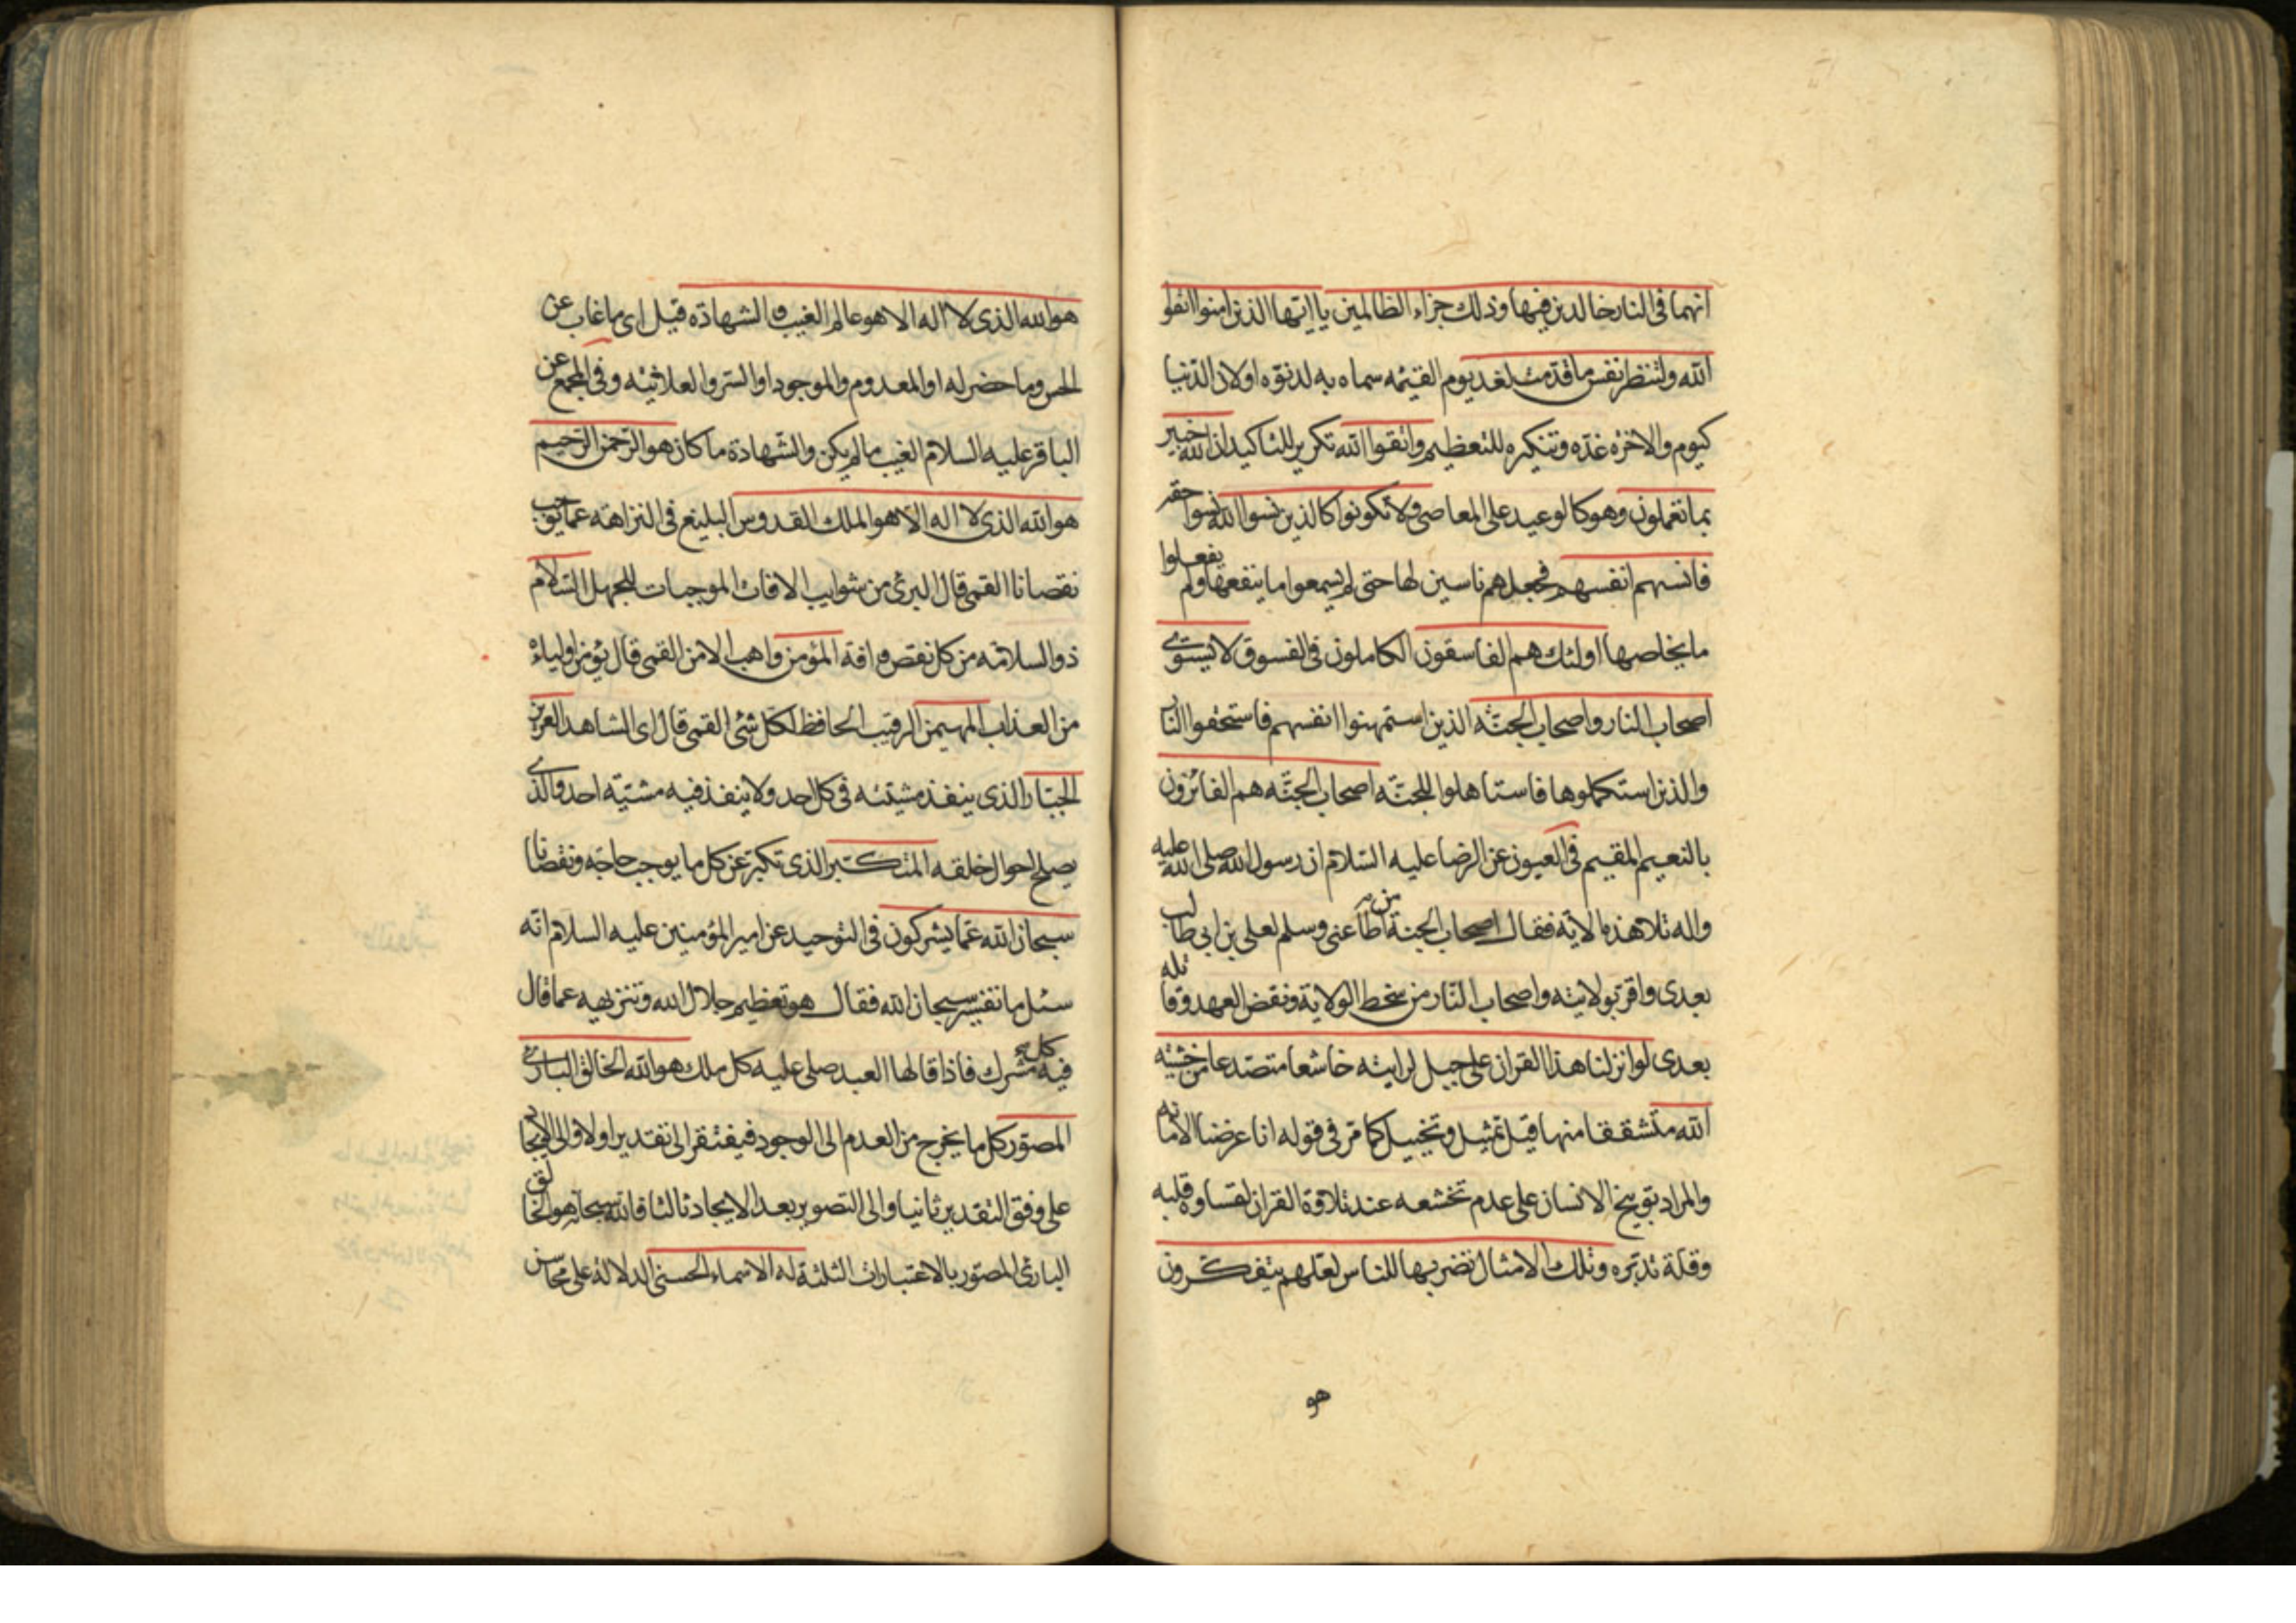 انهما فى النار خالدين فيها وذلك جزاء الظالمين يا ايها الذين امنوا اتقوا
الله ولتنظر نفس ما قدمت لغد يوم القيمه سماه به لدنوه او لان الدنيا
كيوم والاخره غده وتنكيره للتعظيم واتقوا الله تكرير للتاكيد ان الله خبير
بما تعملون وهو كالوعيد على المعاصى ولا تكونوا كالذين نسوا الله نسوا حقه
فانسهم انفسهم فجعلهم ناسين لها حتى لم يسمعوا ما ينفعها ولم يفعلوا
ما يخلصها اولئك هم الفاسقون الكاملون فى الفسوق لا يستوى
اصحاب النار واصحاب الجنه الذين استمهنوا انفسهم فاستحقوا النار
والذين استكملوها فاستاهلوا للجنه اصحاب الجنه هم الفائزون
بالنعيم المقيم فى العيون عن الرضا عليه السلام ان رسول الله صلى الله عليه
واله تلا هذه الاية فقال اصحاب الجنة من اطاعنى وسلم لعلى بن ابي طالب
بعدى واقر بولايته واصحاب النار من سخط الولاية ونقض العهد وقاتله
بعدى لو انزلنا هذا القران على جبل لرايته خاشعا متصدعا من خشيه
الله متشققا منها قيل تمثيل وتخييل كما مر فى قوله انا عرضنا الامانه
والمراد توبيخ الانسان على عدم تخشعه عند تلاوة القران لقساوه قلبه
وقلة تدبره وتلك الامثال نضربها للناس لعلهم يتفكرون
هو
هو الله الذى لا اله الا هو عالم الغيب والشهادة قيل اى ما غاب عن
الحس وما حضر له او المعدوم والموجود او السر والعلانيه وفى المجمع عن
الباقر عليه السلام الغيب ما لم يكن والشهادة ما كان هو الرحمن الرحيم
هو الله الذى لا اله الا هو الملك القدوس البليغ فى النزاهة عما يوجب
نقصانا القمى قال البرئ من شوايب الافات الموجبات للجهل السلام
ذو السلامه من كل نقص وافة المؤمن واهب الامن القمى قال يؤمن اولياءه
من العذاب المهيمن الرقيب الحافظ لكل شئ القمى قال اى الشاهد العزيز
الجبار الذى ينفذ مشيته فى كل احد ولا ينفذ فيه مشيه احد والذى
يصلح احوال خلقه المتكبر الذى تكبر عن كل ما يوجب حاجه ونقصانا
سبحان الله عما يشركون فى التوحيد عن امير المؤمنين عليه السلام انه
سئل ما تفسير سبحان الله فقال هو تعظيم جلال الله وتنزيهه عما قال
فيه كل مشرك فاذا قالها العبد صلى عليه كل ملك هو الله الخالق البارئ
المصور كل ما يخرج من العدم الى الوجود فيفتقر الى تقدير اولا والى الايجاد
على وفق التقدير ثانيا والى التصوير بعد الايجاد ثالثا فالله سبحانه هو الخالق
البارئ المصور بالاعتبارات الثلثة له الاسماء الحسنى الدلالة على محاسن